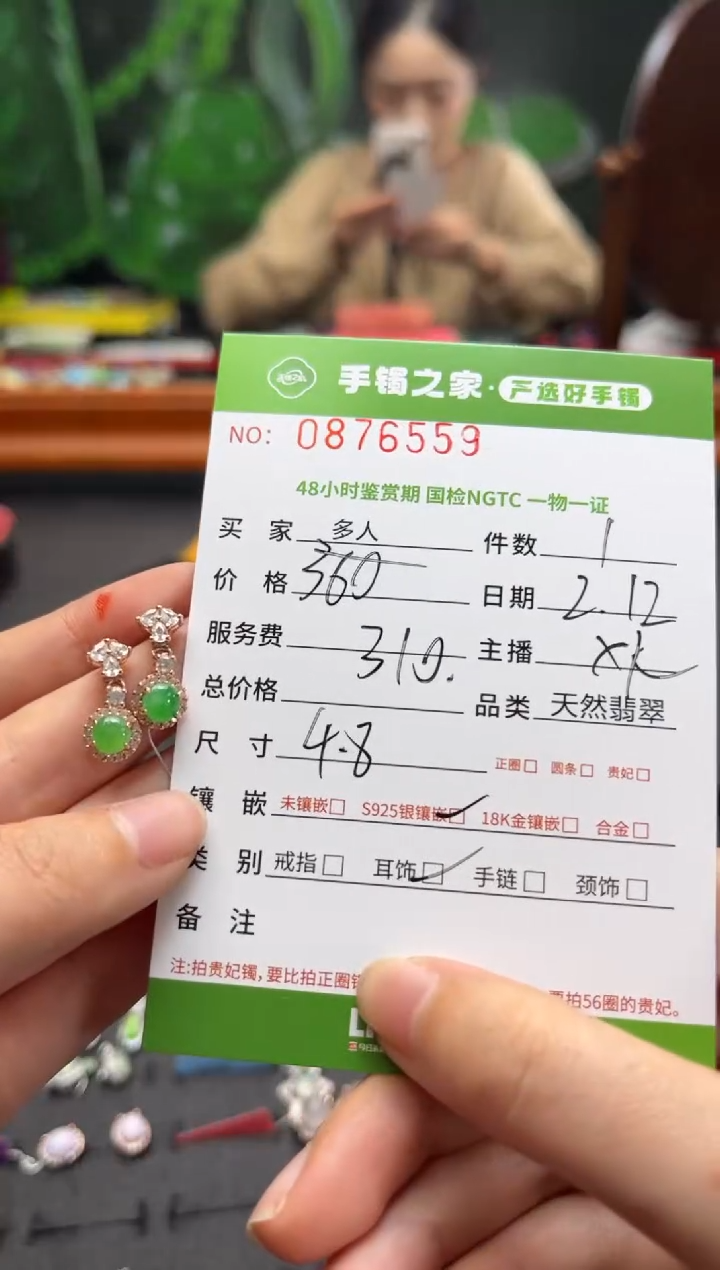 手镯之家·严选好手镯
NO: 0876559
48小时鉴赏期 国检NGTC 一物一证
买 家 多人 件数 1
价 格 360 日期 2.12
服务费 310. 主播
总价格 品类 天然翡翠
尺 寸 4.8 正圈□ 圆条□ 贵妃□
镶 嵌 未镶嵌□ S925银镶嵌☑ 18K金镶嵌□ 合金□
类 别 戒指□ 耳饰☑ 手链□ 颈饰□
备 注
注:拍贵妃镯,要比拍正圈 拍56圈的贵妃。